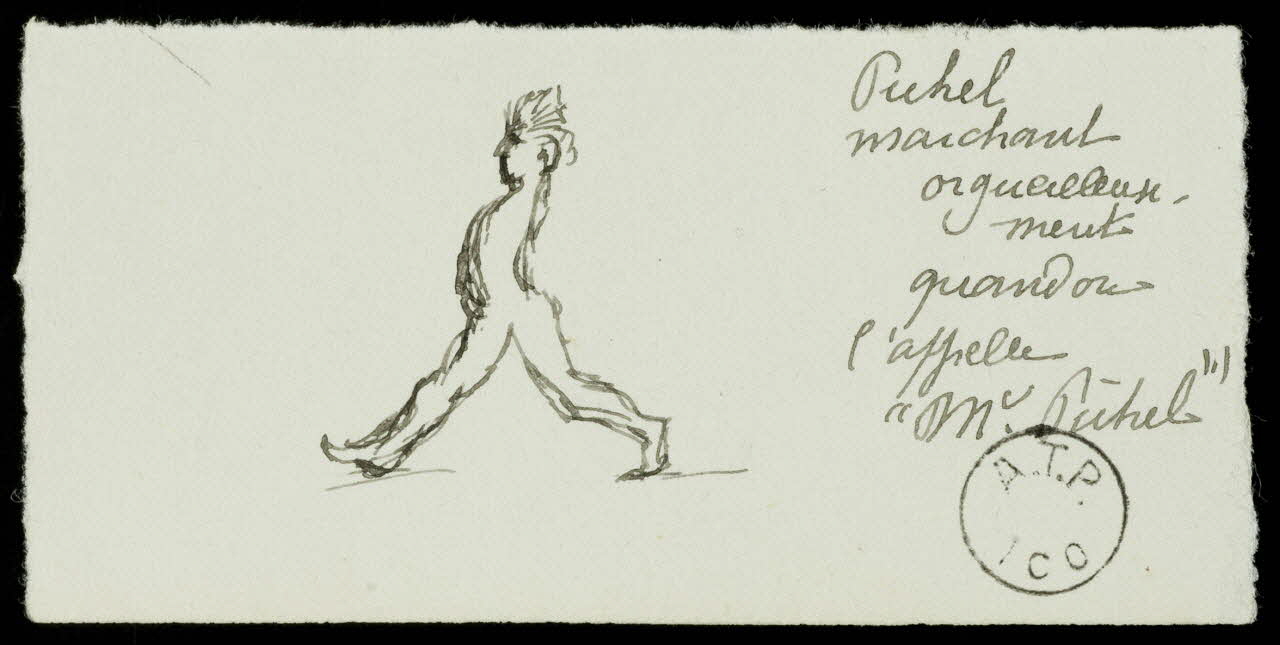 Puhel
marchant
orgueilleuse-
ment
quand on
l'appelle
"Mr. Puhel"
A.T.P.
ICO